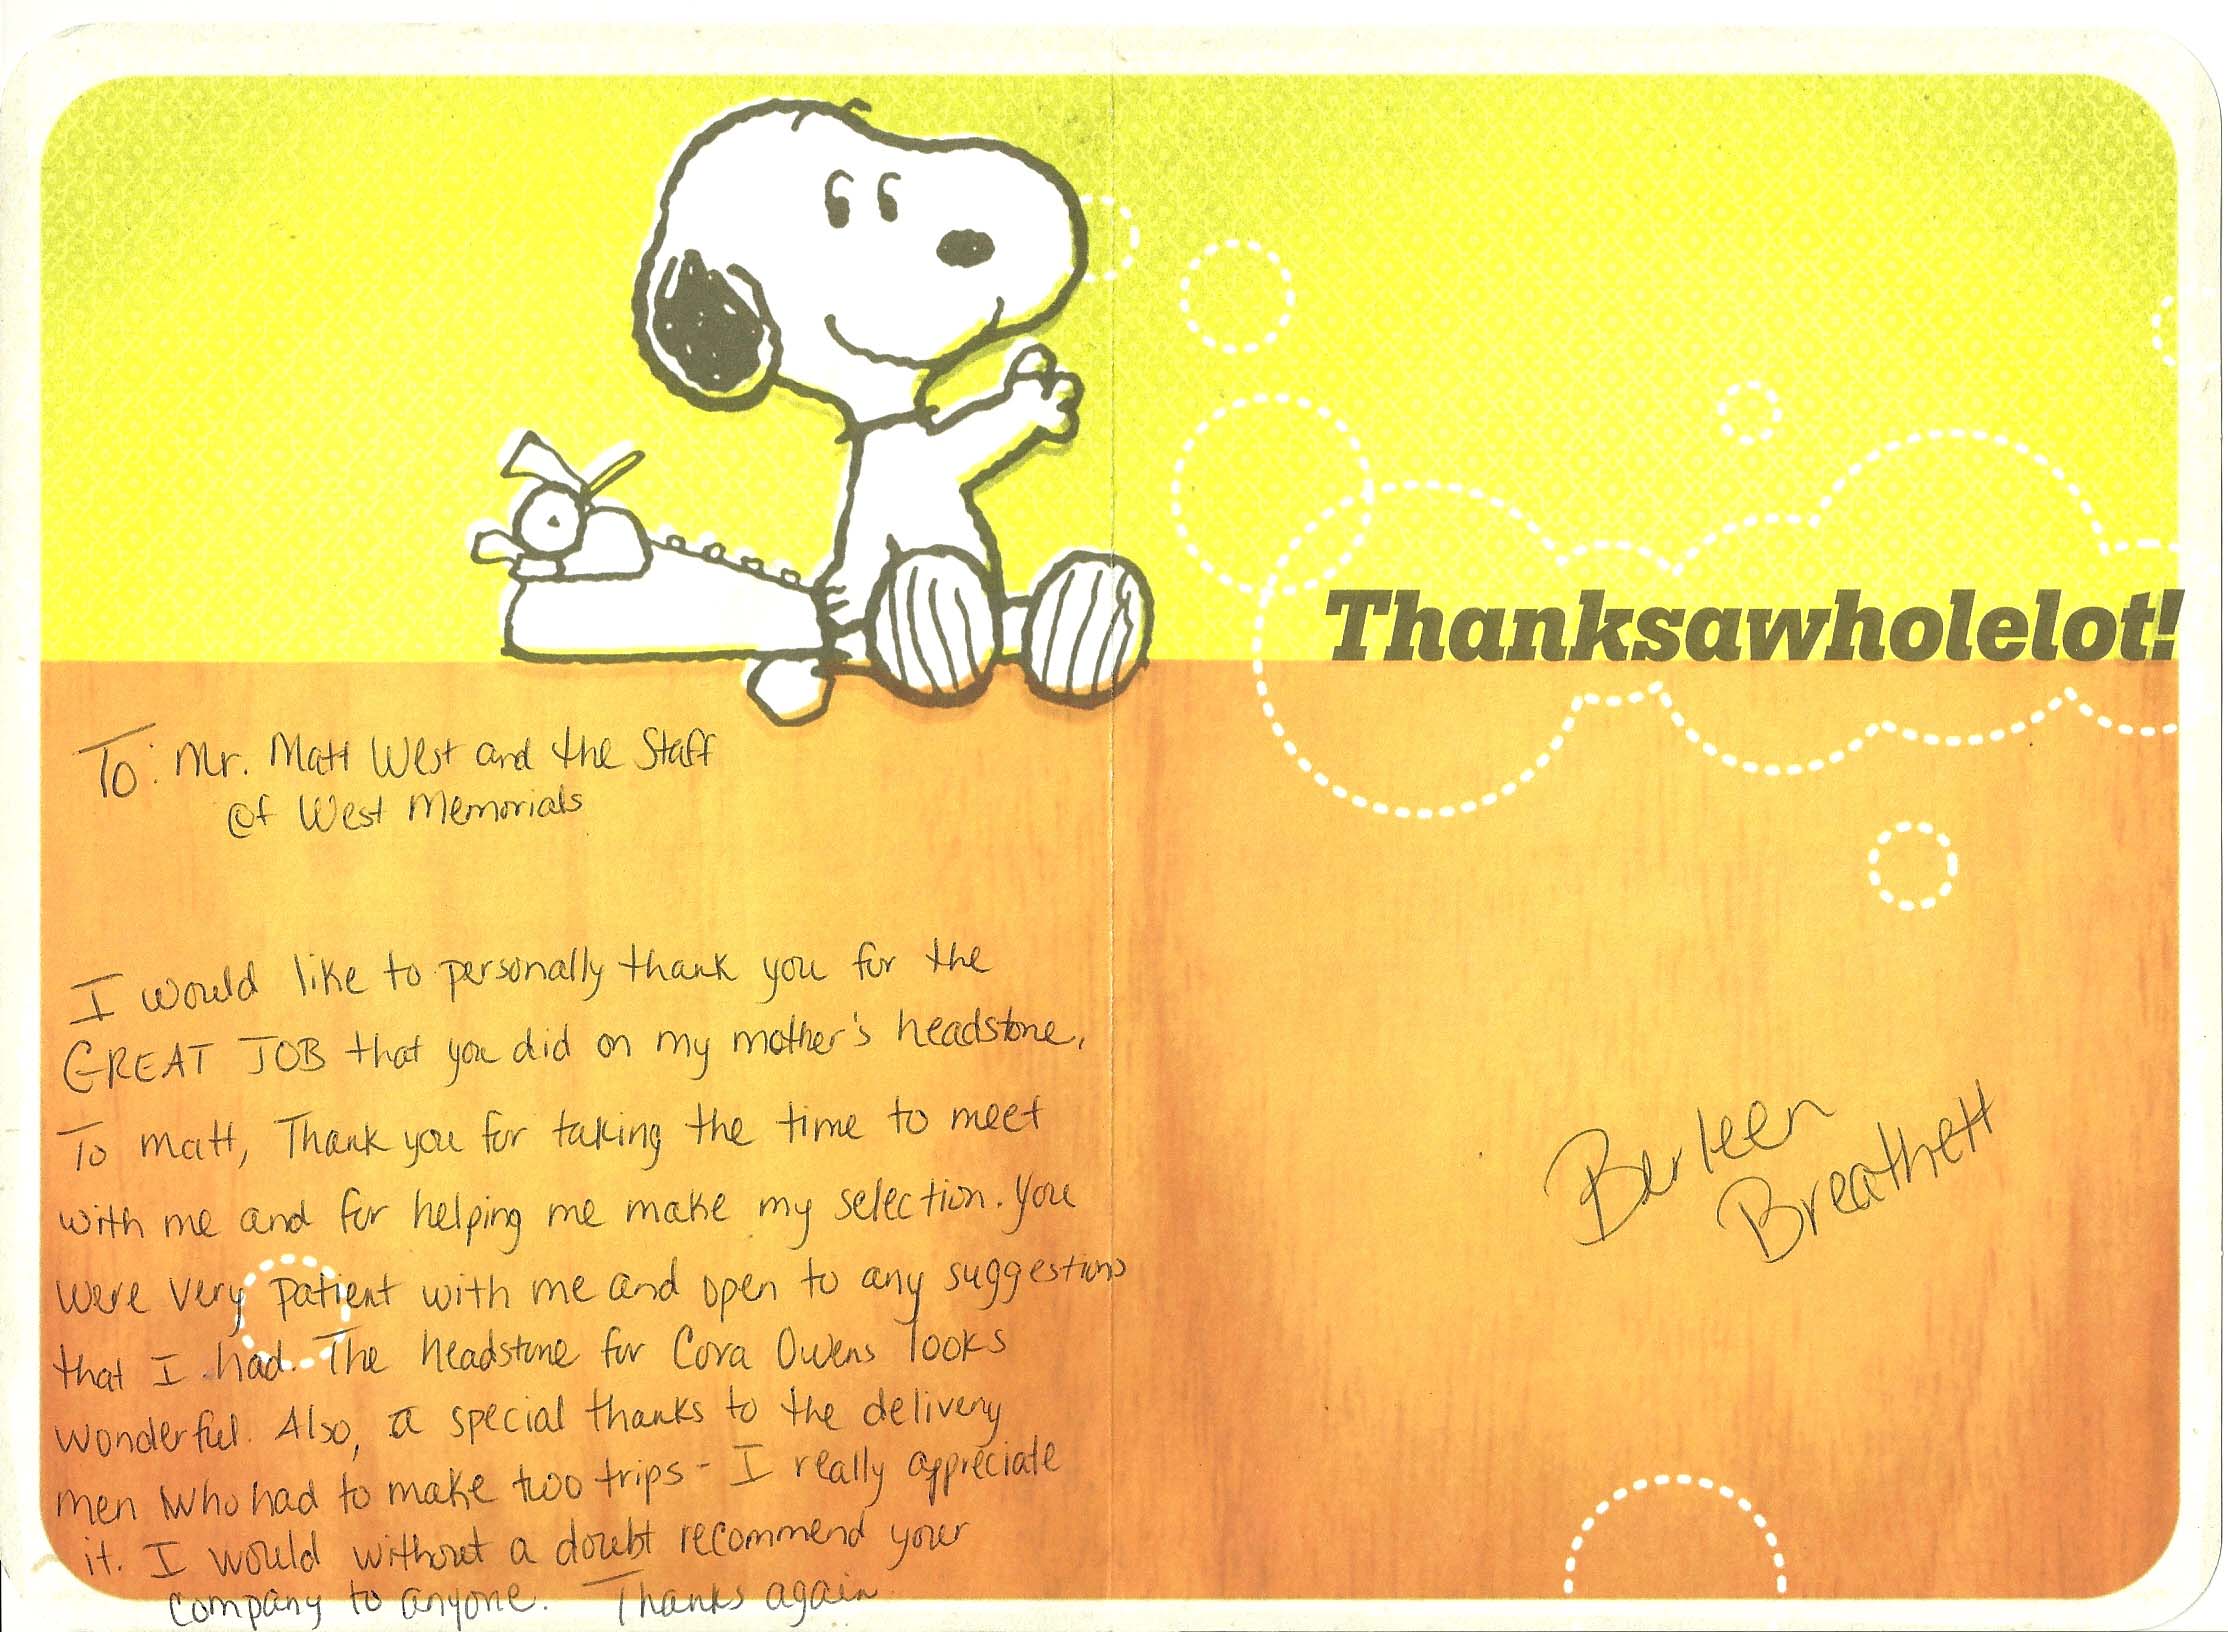 Thanksawholelot!
To: Mr. Matt West and the Staff
@f West Memorials
I would like to personally thank you for the
GREAT JOB that you did on my mother's headstone.
To Matt, Thank you for taking the time to meet
with me and for helping me make my selection. You
were very patient with me and open to any suggestions
that I had. The headstone for Cora Owens looks
wonderful. Also, a special thanks to the delivery
men who had to make two trips - I really appreciate
it. I would without a doubt recommend your
company to anyone. Thanks again
Berleen
Breathett